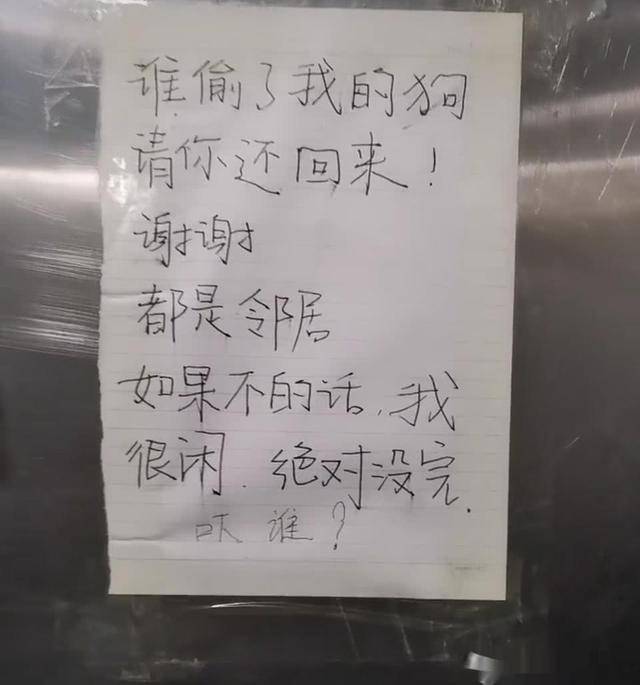 谁偷了我的狗
请你还回来！
谢谢
都是邻居
如果不的话，我
很闲．绝对没完．
吓谁？